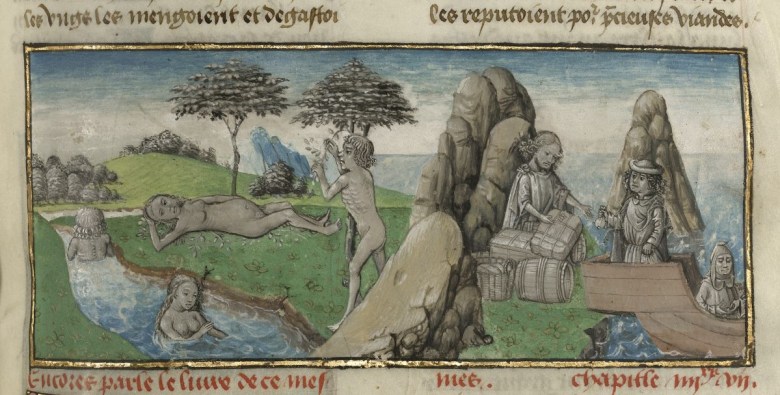 les vngs les mengoient et degastoi
les reputoient por p̃cieuses viandes.
Encores parle le liure de ce mes
mes. chapitle iiii^xx vii.